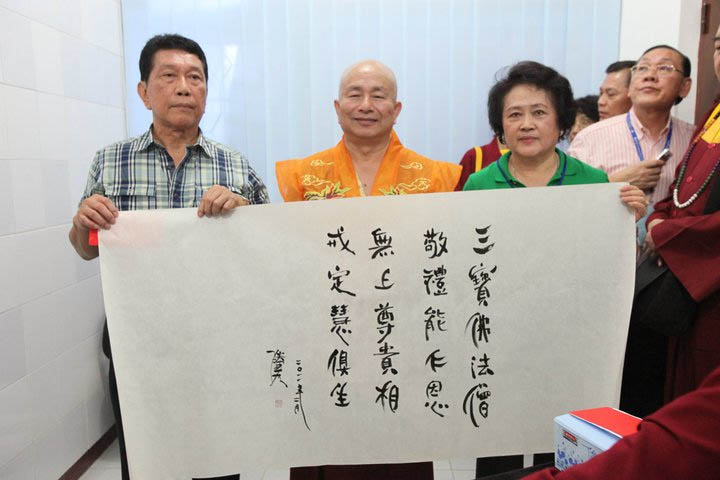 三寶佛法僧
敬禮能仁恩
無上尊貴相
戒定慧俱生